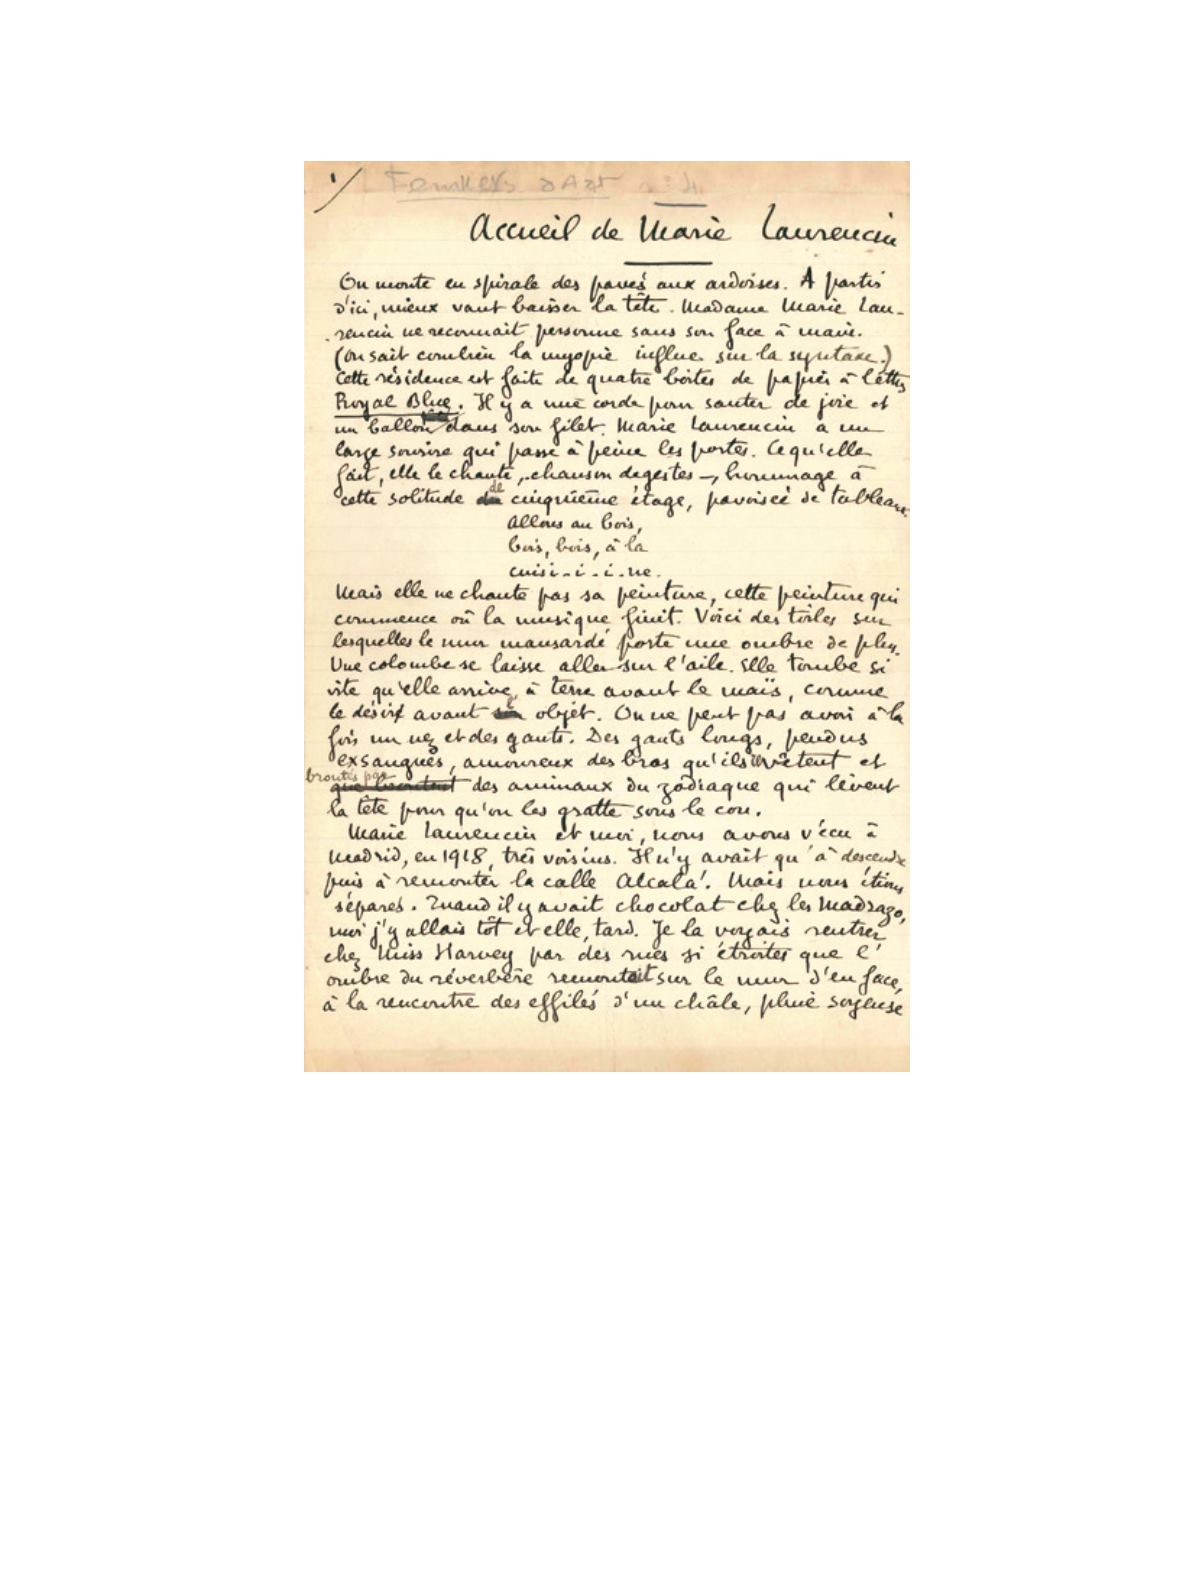 1/
Feuillets d'Art n: 4.
Accueil de Marie Laurencin
On monte en spirale des pavés aux ardoises. A partir
d'ici, mieux vaut baisser la tête. Madame Marie Lau-
rencin ne reconnait personne sans son face à main.
(On sait combien la myopie influe sur la syntaxe.)
Cette résidence est faite de quatre boîtes de papier à lettres
Royal Blue. Il y a une corde pour sauter de joie et
un ballon dans son filet. Marie Laurencin a un
large sourire qui passe à peine les portes. Ce qu'elle
fait, elle le chante, - chanson de gestes -, hommage à
cette solitude de cinquième étage, pavoisée de tableaux.
Allons au bois,
bois, bois, à la
cuisi-i-i-ne.
Mais elle ne chante pas sa peinture, cette peinture qui
commence où la musique finit. Voici des toiles sur
lesquelles le mur mansardé porte une ombre de plus.
Une colombe se laisse aller sur l'aile. Elle tombe si
vite qu'elle arrive à terre avant le maïs, comme
le désir avant l'objet. On ne peut pas avoir à la
fois un nez et des gants. Des gants longs, pendus
exsangues, amoureux des bras qu'ils vêtent et
broutés par
que broutent des animaux du zodiaque qui lèvent
la tête pour qu'on les gratte sous le cou.
Marie Laurencin et moi, nous avons vécu à
Madrid, en 1918, très voisins. Il n'y avait qu'à descendre
puis à remonter la calle Alcalá. Mais nous étions
séparés. Quand il y avait chocolat chez les Madrazo,
moi j'y allais tôt et elle, tard. Je la voyais rentrer
chez Miss Harvey par des rues si étroites que l'
ombre du réverbère remontait sur le mur d'en face,
à la rencontre des effilés d'un châle, pluie soyeuse